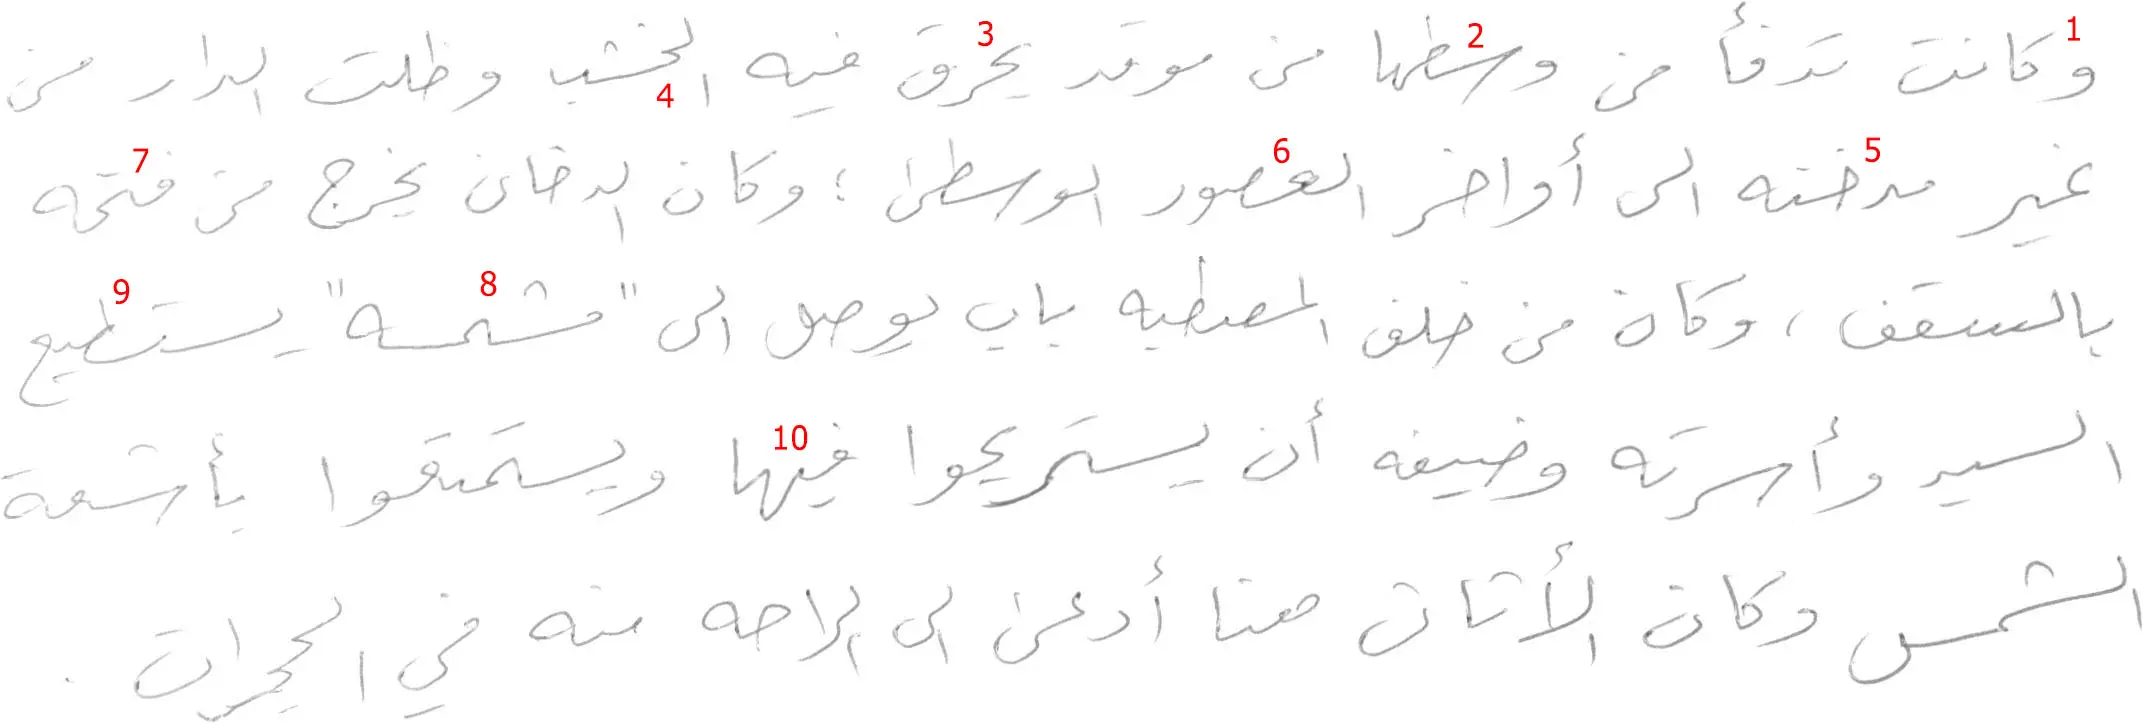 وكانت تدفأ من وسطها من موقد يحرق فيه الخشب وظلت الدار من
غير مدخنه الى أواخر العصور الوسطى ؛ وكان الدخان يخرج من فتحه
بالسقف ، وكان من خلف المصطبه باب يوصل الى "مشمسه" يستطيع
السيد وأسرته وضيفه أن يستريحوا فيها ويستمتعوا بأشعة
الشمس وكان الأثاث هنا أدعى الى الراحه منه في الحجرات .
1
2
3
4
5
6
7
8
9
10